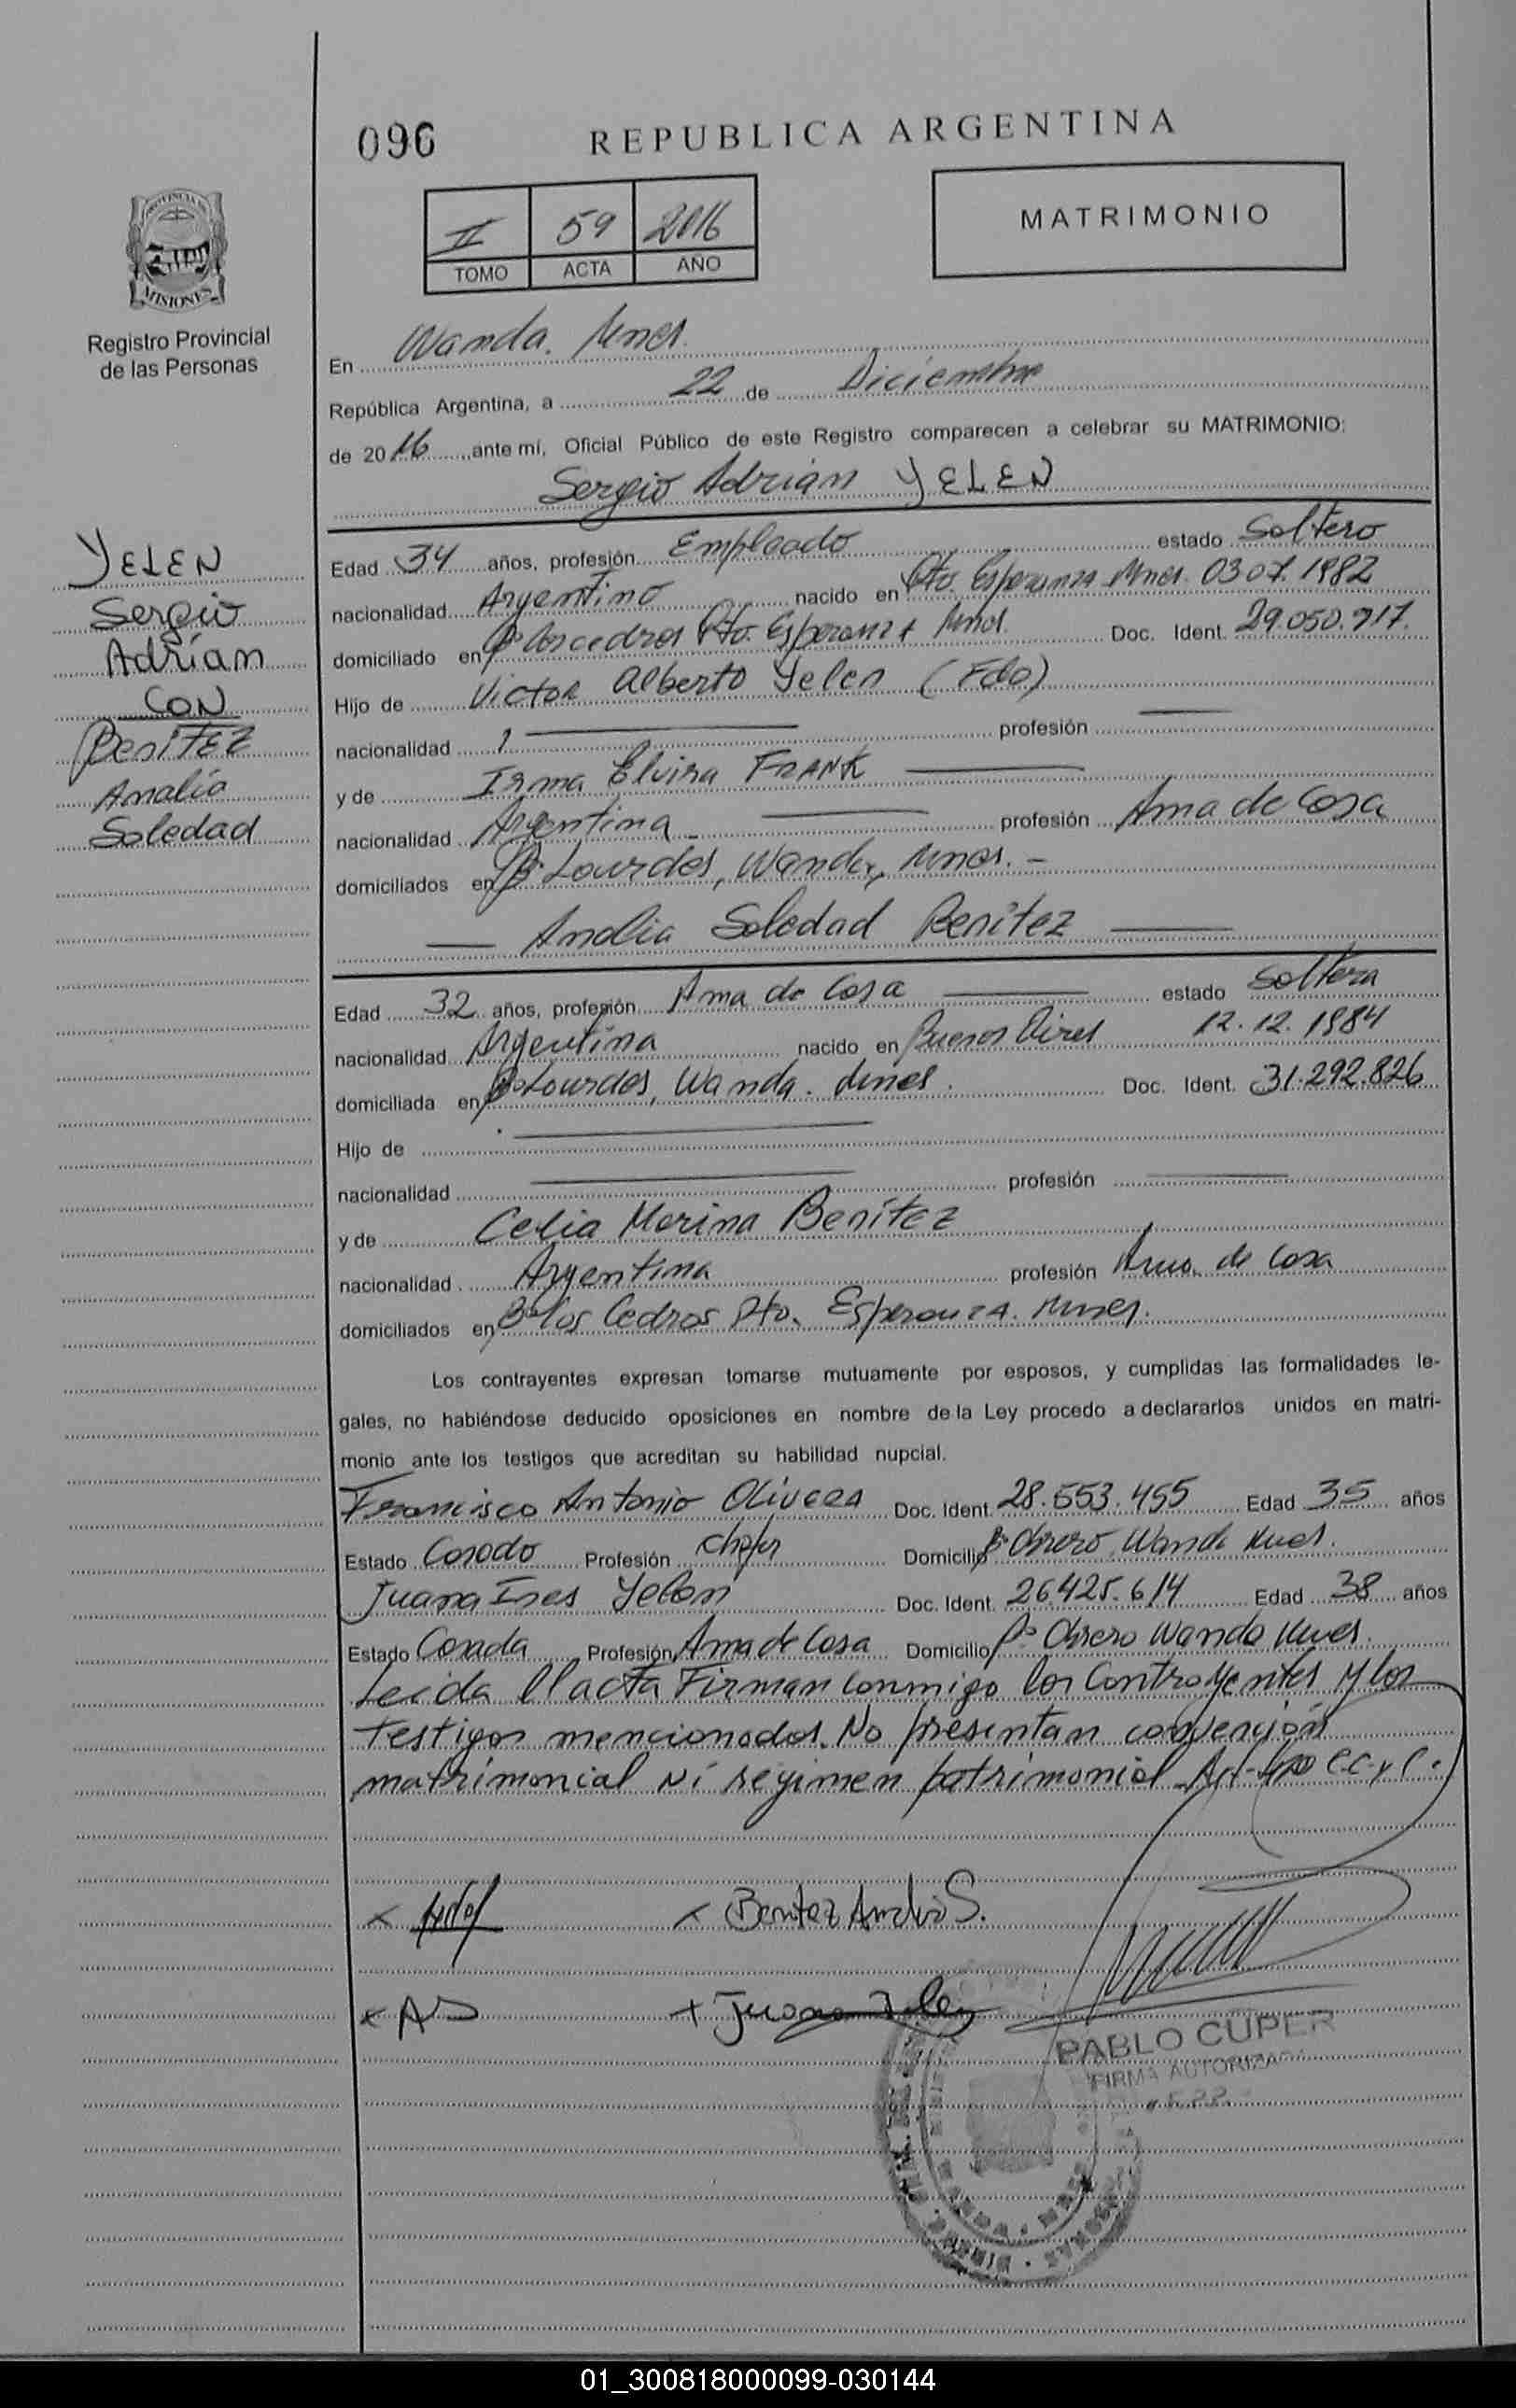 096
REPUBLICA ARGENTINA
II 59 2016
TOMO ACTA AÑO
MATRIMONIO
PROVINCIA DE
MISIONES
Registro Provincial
de las Personas
En Wanda. Mnes.
República Argentina, a 22 de Diciembre
de 2016 ante mí, Oficial Público de este Registro comparecen a celebrar su MATRIMONIO:
Sergio Adrián YELEN
YELEN
Sergio
Adrían
CON
BenITEZ
Analía
Soledad
Edad 34 años, profesión Empleado estado Soltero
nacionalidad Argentino nacido en Pto. Esperanza Mnes. 03 07. 1982
domiciliado en Bº Los cedros Pto. Esperanza Mnes. Doc. Ident. 29.050.717.
Hijo de Victor Alberto Yelen (Fdo)
nacionalidad profesión
y de Irma Elvira FRANK
nacionalidad Argentina profesión Ama de Casa
domiciliados en Bº Lourdes, Wanda, Mnes.-
Analia Soledad Benitez
Edad 32 años, profesión Ama de Casa estado Soltera
nacionalidad Argentina nacido en Buenos Aires 12.12.1984
domiciliada en Bº Lourdes, Wanda. Mnes. Doc. Ident. 31.292.826
Hijo de
nacionalidad profesión
y de Celia Marina Benítez
nacionalidad Argentina profesión Ama de Casa
domiciliados en Bº Los Cedros Pto. Esperanza. Mnes.
Los contrayentes expresan tomarse mutuamente por esposos, y cumplidas las formalidades le-
gales, no habiéndose deducido oposiciones en nombre de la Ley procedo a declararlos unidos en matri-
monio ante los testigos que acreditan su habilidad nupcial.
Francisco Antonio Olivera Doc. Ident. 28.553.455 Edad 35 años
Estado Casado Profesión Chofer Domicilio Bº Obrero Wanda Mnes.
Juana Ines Yelen Doc. Ident. 26425.614 Edad 38 años
Estado Casada Profesión Ama de Casa Domicilio Bº Obrero Wanda Mnes.
Leida el acta Firman conmigo los Contrayentes y los
testigos mencionados. No presentan convención
matrimonial Ni regimen patrimonial Art. C.C. y C.
x x Benitez Analia S.
x AO + Juana Yelen
PABLO CUPER
FIRMA AUTORIZADA
R.P.P.
01_300818000099-030144